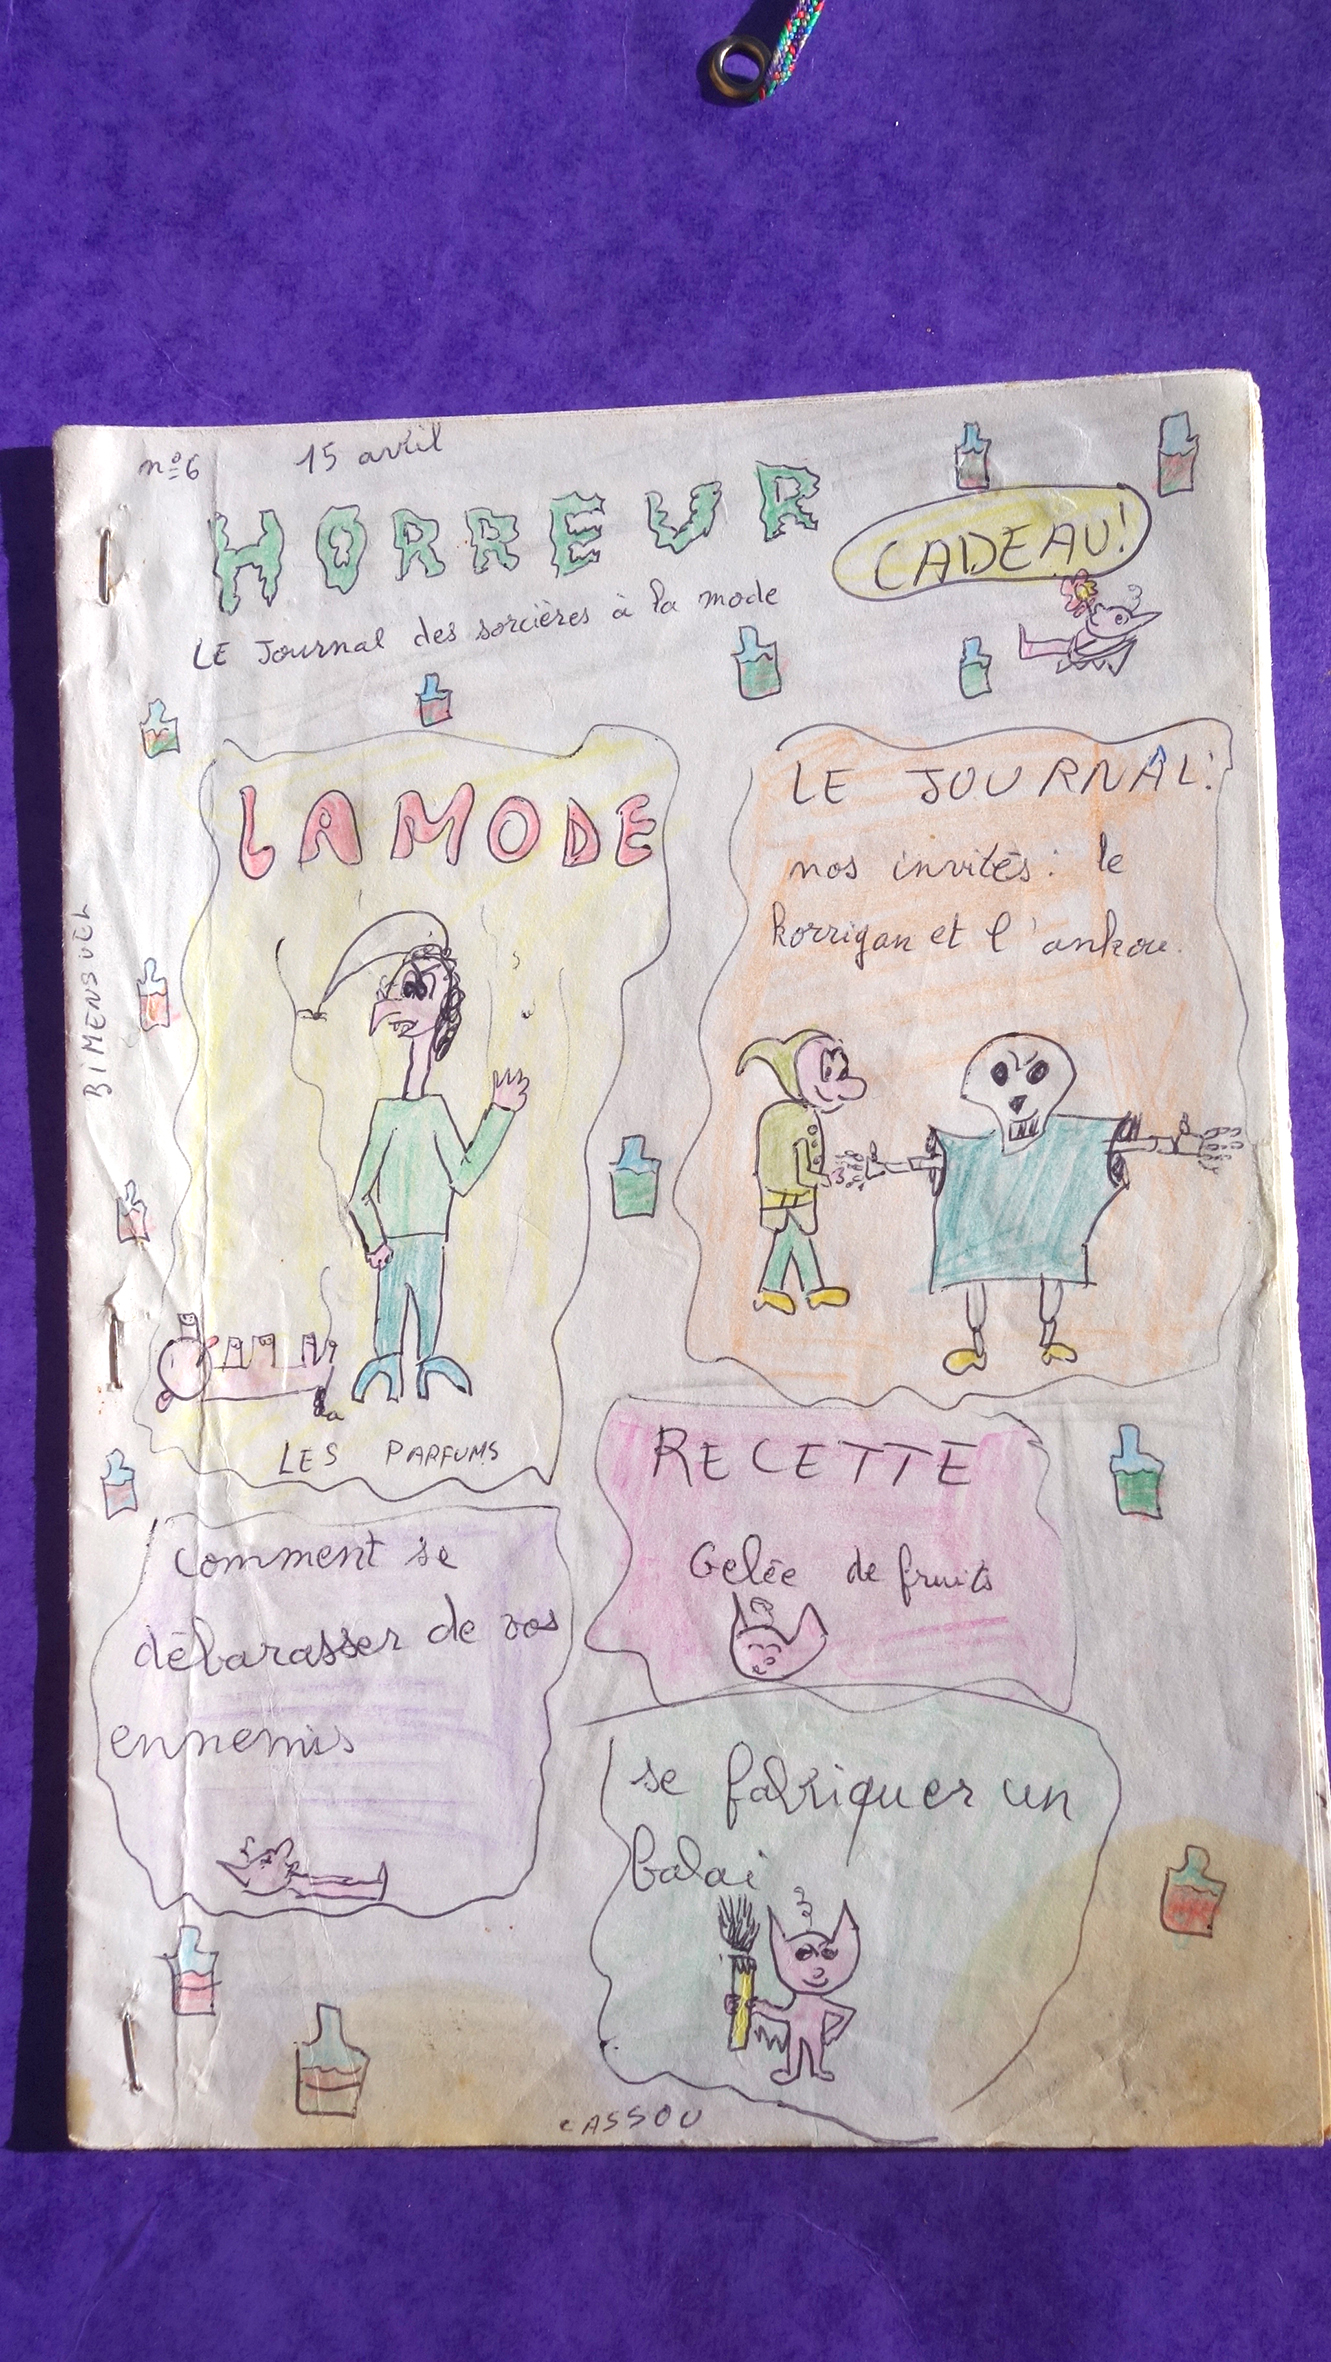 nº6 15 avril
HORREUR
CADEAU!
LE Journal des sorcières à la mode
BIMENSUEL
LA MODE
LES PARFUMS
LE JOURNAL:
nos invités: le
korrigan et l'ankou.
RECETTE
Gelée de fruits
comment se
débarasser de vos
ennemis
se fabriquer un
balai
CASSOU